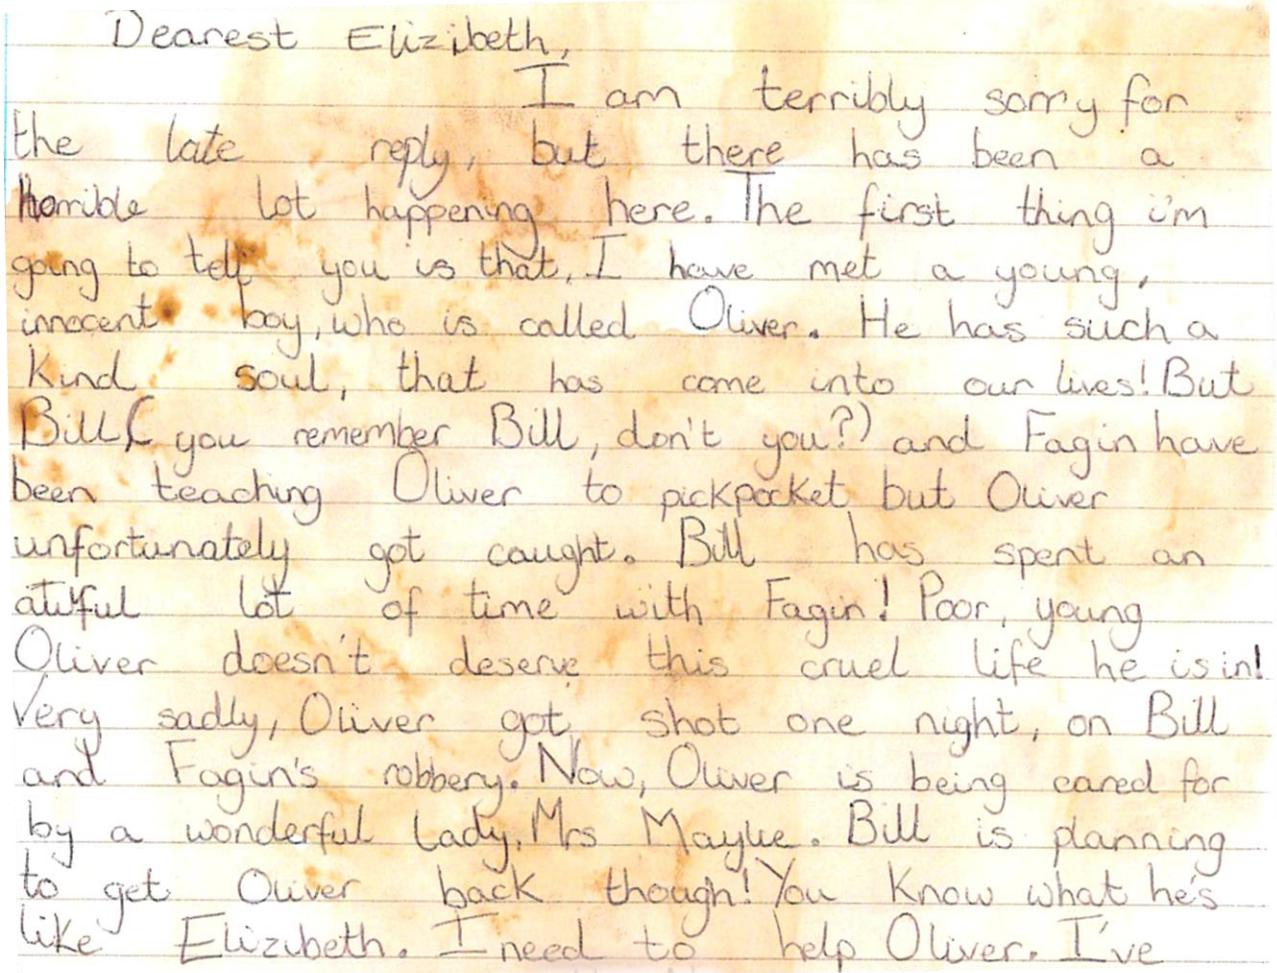 Dearest Elizibeth,
I am terribly sorry for
the late reply, but there has been a
horrible lot happening here. The first thing i'm
going to tell you is that, I have met a young,
innocent boy, who is called Oliver. He has such a
kind soul, that has come into our lives! But
Bill (you remember Bill, don't you?) and Fagin have
been teaching Oliver to pickpocket but Oliver
unfortunately got caught. Bill has spent an
awful lot of time with Fagin! Poor, young
Oliver doesn't deserve this cruel life he is in!
Very sadly, Oliver got shot one night, on Bill
and Fagin's robbery. Now, Oliver is being cared for
by a wonderful lady, Mrs Maylie. Bill is planning
to get Oliver back though! You know what he's
like Elizibeth. I need to help Oliver. I've